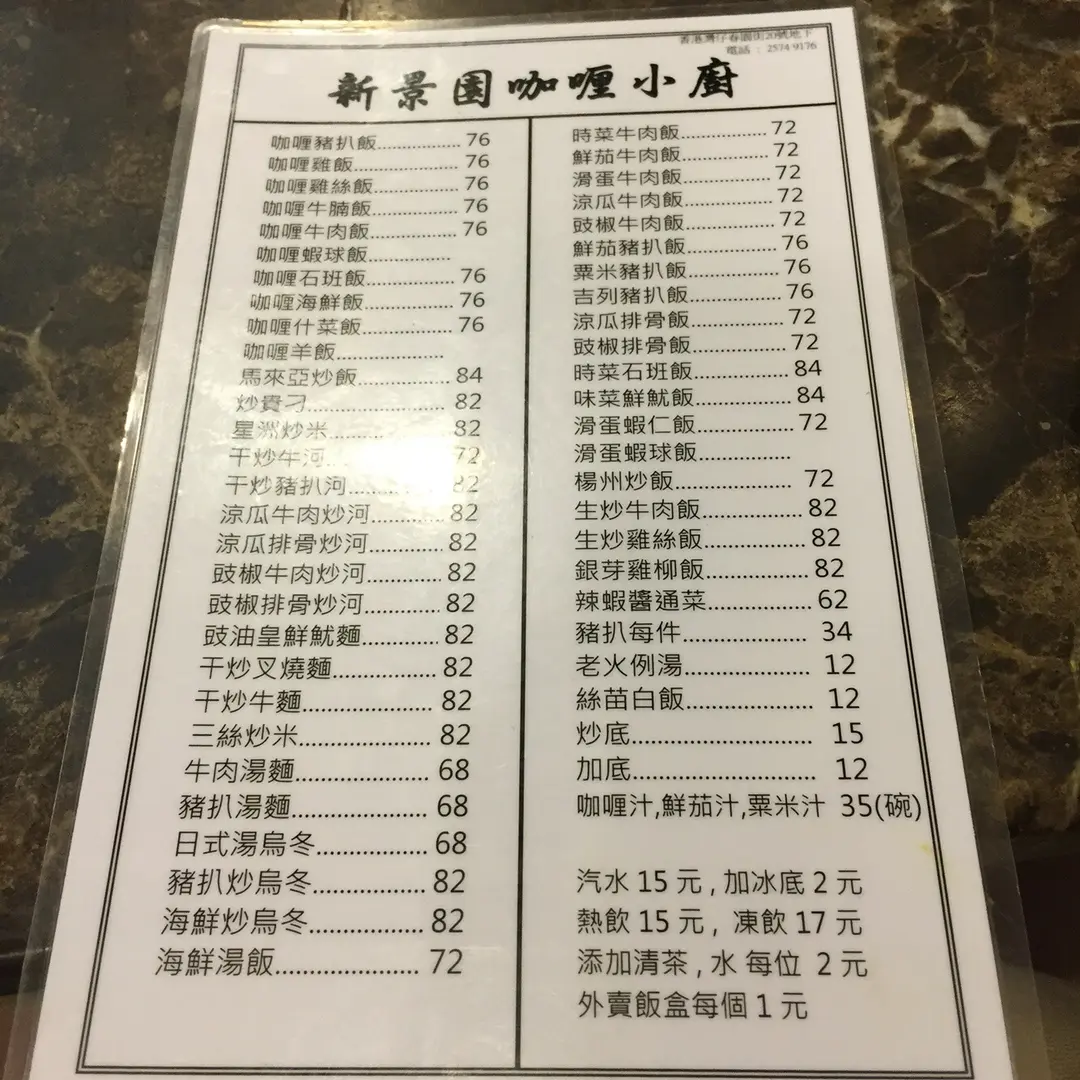 香港灣仔春園街20號地下
電話 : 2574 9176
新景園咖喱小廚
咖喱豬扒飯................ 76
咖喱雞飯.................... 76
咖喱雞絲飯................ 76
咖喱牛腩飯................ 76
咖喱牛肉飯................ 76
咖喱蝦球飯................
咖喱石班飯................ 76
咖喱海鮮飯................ 76
咖喱什菜飯................ 76
咖喱羊飯....................
馬來亞炒飯................ 84
炒貴刁........................ 82
星洲炒米.................... 82
干炒牛河.................... 72
干炒豬扒河................ 82
涼瓜牛肉炒河............ 82
涼瓜排骨炒河............ 82
豉椒牛肉炒河............ 82
豉椒排骨炒河............ 82
豉油皇鮮魷麵............ 82
干炒叉燒麵................ 82
干炒牛麵.................... 82
三絲炒米.................... 82
牛肉湯麵.................... 68
豬扒湯麵.................... 68
日式湯烏冬................ 68
豬扒炒烏冬................ 82
海鮮炒烏冬................ 82
海鮮湯飯.................... 72
時菜牛肉飯................ 72
鮮茄牛肉飯................ 72
滑蛋牛肉飯................ 72
涼瓜牛肉飯................ 72
豉椒牛肉飯................ 72
鮮茄豬扒飯................ 76
粟米豬扒飯................ 76
吉列豬扒飯................ 76
涼瓜排骨飯................ 72
豉椒排骨飯................ 72
時菜石班飯................ 84
味菜鮮魷飯................ 84
滑蛋蝦仁飯................ 72
滑蛋蝦球飯................
楊州炒飯.................... 72
生炒牛肉飯................ 82
生炒雞絲飯................ 82
銀芽雞柳飯................ 82
辣蝦醬通菜................ 62
豬扒每件.................... 34
老火例湯.................... 12
絲苗白飯.................... 12
炒底............................ 15
加底............................ 12
咖喱汁,鮮茄汁,粟米汁 35(碗)
汽水 15 元 , 加冰底 2 元
熱飲 15 元 , 凍飲 17 元
添加清茶 , 水 每位 2 元
外賣飯盒每個 1 元